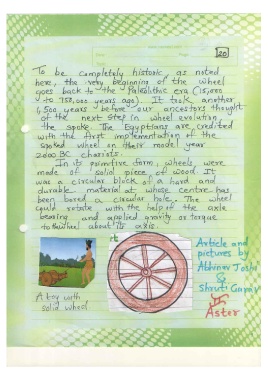 20
To be completely historic, as noted
here, the very beginning of the wheel
goes back to the Paleolithic era (15,000
to 750,000 years ago). It took another
1,500 years before our ancestors thought
of the next step in wheel evolution,
the spoke. The Egyptians are credited
with the first implementation of the
spoked wheel on their model year
2000 BC chariots.
In its primitive form, wheels, were
made of solid piece of wood. It
was a circular block of a hard and
durable material at whose centre has
been bored a circular hole. The wheel
could rotate with the help of the axle
bearing and applied gravity or torque
to the wheel about its axis.
A toy with
solid wheel
Article and
pictures by
Abhinav Joshi
&
Shruti
Aster